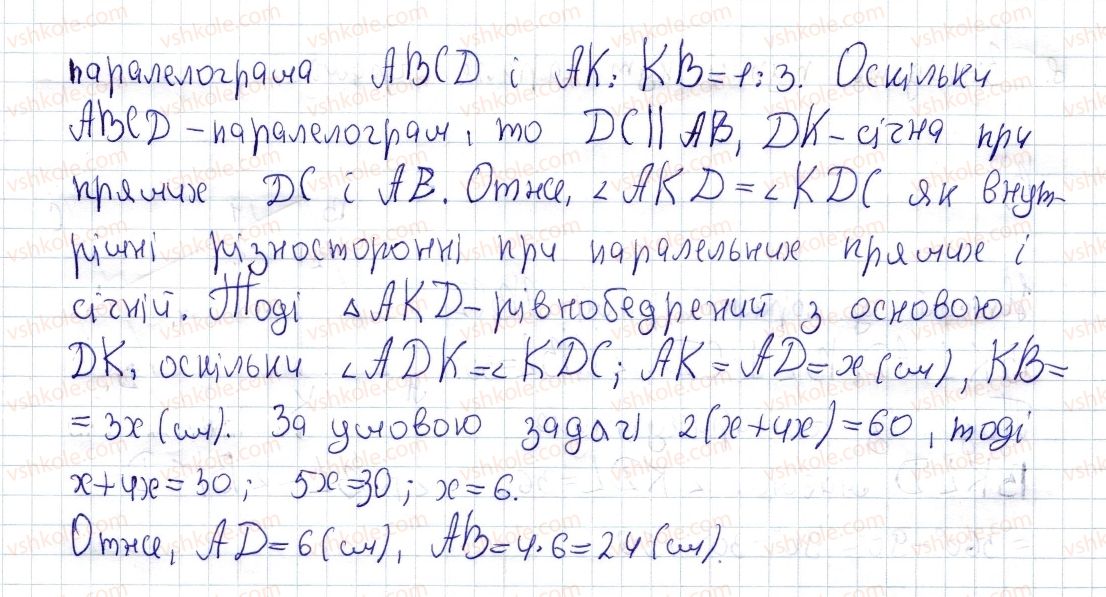 паралелограма ABCD і AK : KB = 1 : 3. Оскільки
ABCD – паралелограм, то DC || AB, DK – січна при
прямих DC і AB. Отже, ∠AKD = ∠KDC як внут-
рішні різносторонні при паралельних прямих і
січній. Тоді △AKD – рівнобедрений з основою
DK, оскільки ∠ADK = ∠KDC; AK = AD = x (см), KB =
= 3x (см). За умовою задачі 2(x + 4x) = 60, тоді
x + 4x = 30; 5x = 30; x = 6.
Отже, AD = 6 (см), AB = 4 · 6 = 24 (см).